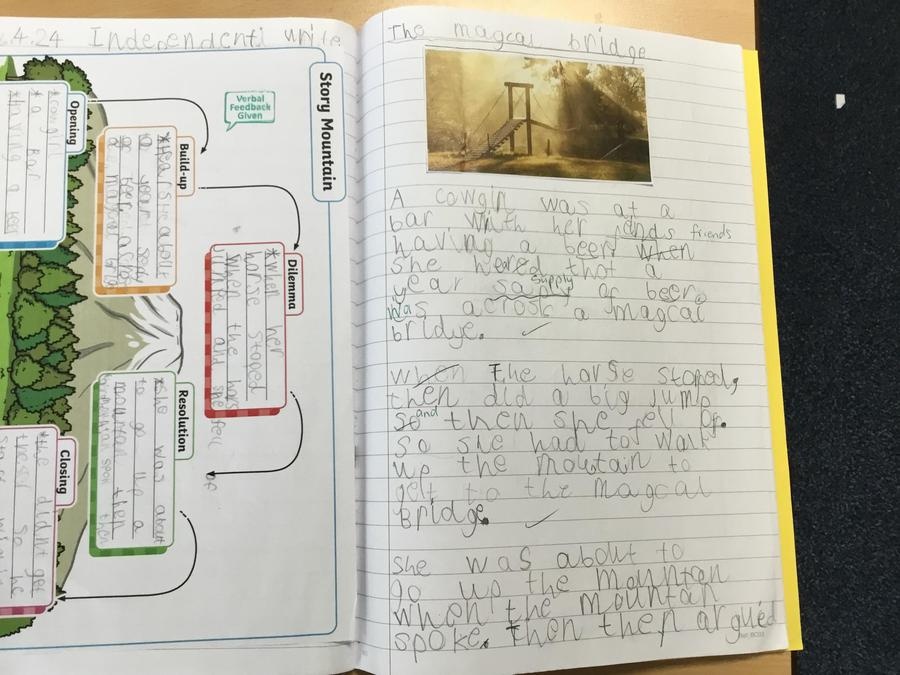 .4.24 Independent write
Story Mountain
Verbal
Feedback
Given
Opening
*cowgirl
*a bar
*having a beer
Build-up
*Hears she about
a year
of beer
Dilemma
*when her
horse stoped
when the hors
jumed and she fell
of
Resolution
*she was about
to go up a
mountan then
Closing
*the didnt get
thesy so he
The magcal bridge
A cowgirl was at a
bar whith her friends
having a beer when
she heared that a
year supply of beer
was across a magcal
bridge.
when The horse stoped,
then did a big jump
so and then she fell of.
so she had to walk
up the mountain to
gett to the magcal
Bridge.
she was about to
go up the mountan
when the mountan
spoke. Then they argued